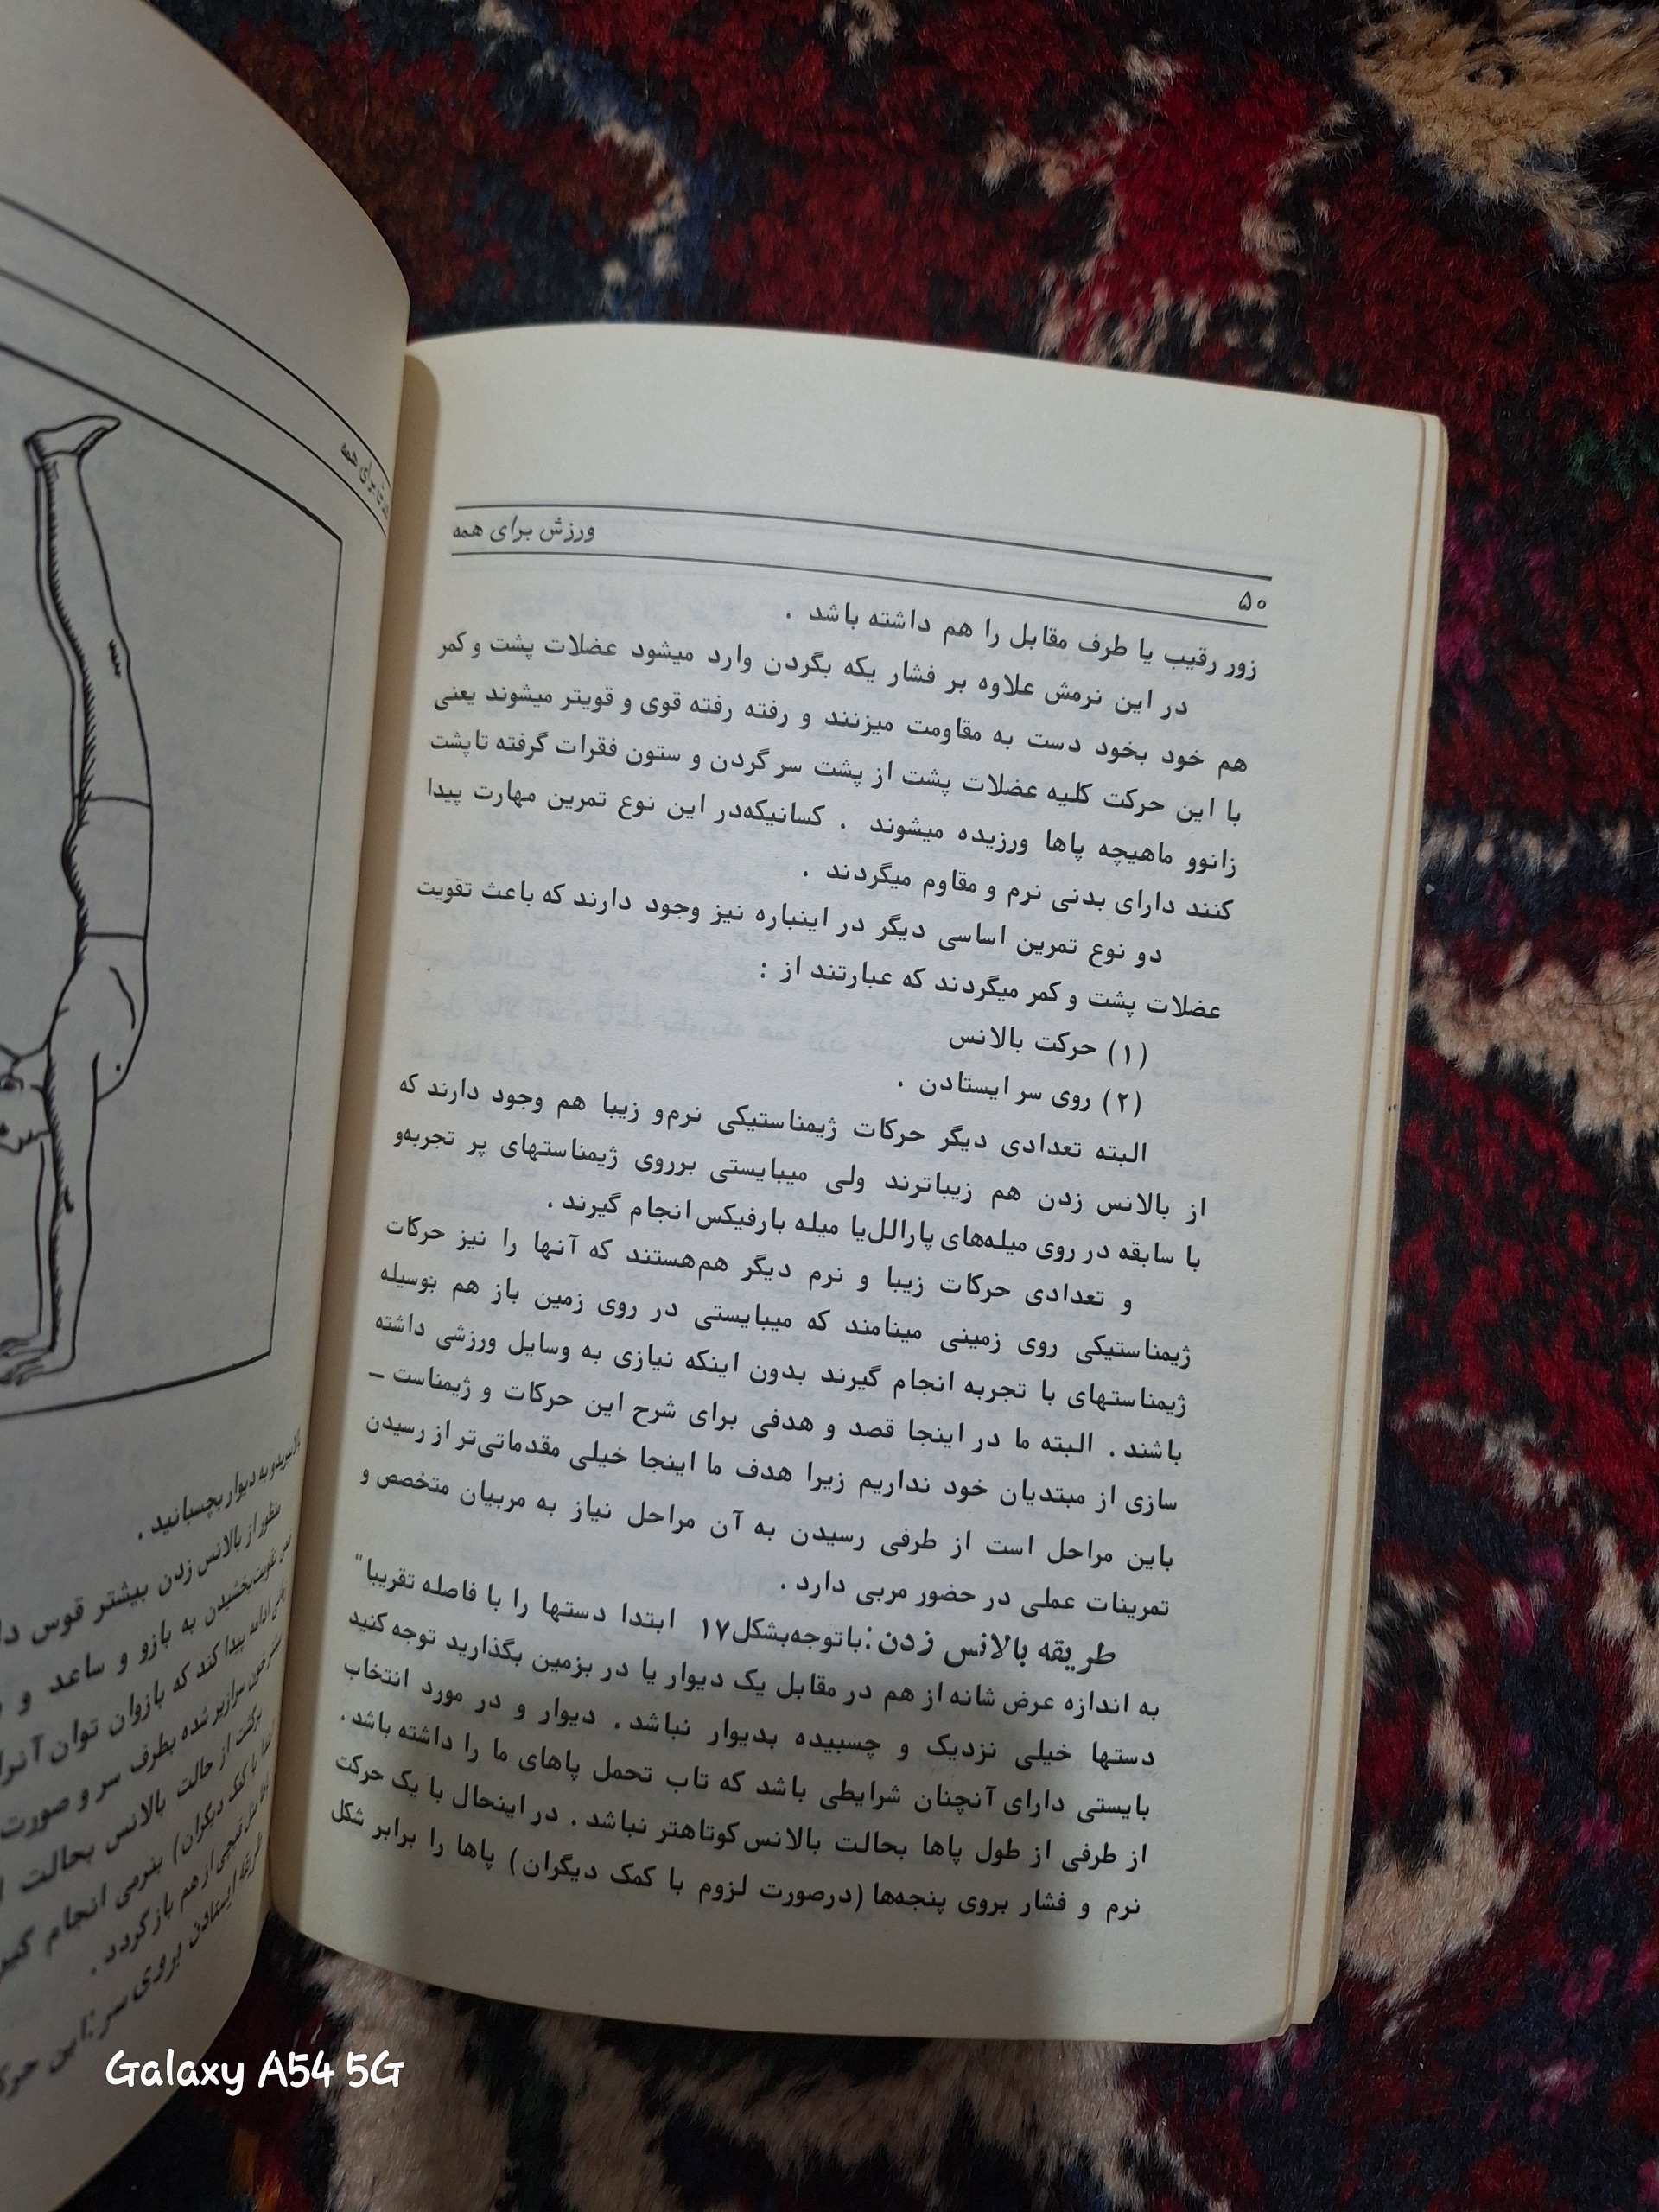 ورزش برای همه
۵۰
زور رقیب یا طرف مقابل را هم داشته باشد .
در این نرمش علاوه بر فشار یکه بگردن وارد میشود عضلات پشت و کمر
هم خود بخود دست به مقاومت میزنند و رفته رفته قوی و قویتر میشوند یعنی
با این حرکت کلیه عضلات پشت از پشت سر گردن و ستون فقرات گرفته تاپشت
زانوو ماهیچه پاها ورزیده میشوند . کسانیکه‌در این نوع تمرین مهارت پیدا
کنند دارای بدنی نرم و مقاوم میگردند .
دو نوع تمرین اساسی دیگر در اینباره نیز وجود دارند که باعث تقویت
عضلات پشت و کمر میگردند که عبارتند از :
(۱) حرکت بالانس
(۲) روی سر ایستادن .
البته تعدادی دیگر حرکات ژیمناستیکی نرم‌و زیبا هم وجود دارند که
از بالانس زدن هم زیباترند ولی میبایستی برروی ژیمناستهای پر تجربه‌و
با سابقه در روی میله‌های پارالل‌یا میله بارفیکس انجام گیرند .
و تعدادی حرکات زیبا و نرم دیگر هم‌هستند که آنها را نیز حرکات
ژیمناستیکی روی زمینی مینامند که میبایستی در روی زمین باز هم بوسیله
ژیمناستهای با تجربه انجام گیرند بدون اینکه نیازی به وسایل ورزشی داشته
باشند . البته ما در اینجا قصد و هدفی برای شرح این حرکات و ژیمناست ـ
سازی از مبتدیان خود نداریم زیرا هدف ما اینجا خیلی مقدماتی‌تر از رسیدن
باین مراحل است از طرفی رسیدن به آن مراحل نیاز به مربیان متخصص و
تمرینات عملی در حضور مربی دارد .
طریقه بالانس زدن: باتوجه‌بشکل۱۷ ابتدا دستها را با فاصله تقریبا"
به اندازه عرض شانه از هم در مقابل یک دیوار یا در بزمین بگذارید توجه کنید
دستها خیلی نزدیک و چسبیده بدیوار نباشد . دیوار و در مورد انتخاب
بایستی دارای آنچنان شرایطی باشد که تاب تحمل پاهای ما را داشته باشد .
از طرفی از طول پاها بحالت بالانس کوتاهتر نباشد . در اینحال با یک حرکت
نرم و فشار بروی پنجه‌ها (درصورت لزوم با کمک دیگران) پاها را برابر شکل
برای همه
به دیوار بچسبانید .
از بالانس زدن بیشتر قوس
تقویت‌بخشیدن به بازو و ساعد و
ادامه پیدا کند که بازوان توان
سرازیر شده بطرف سر و صورت
از حالت بالانس بحالت
با کمک دیگران) بنرمی انجام
از هم باز گردد .
ایستادن بروی سر: این
Galaxy A54 5G